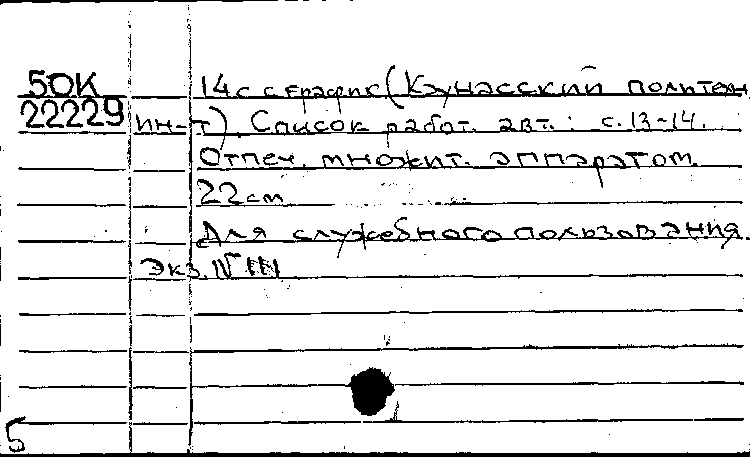 50К 14 с с график (Каунасский политехн.
22229 ин-т). Список работ. авт.: с. 13-14.
Отпеч. множит. аппаратом.
22 см
Для служебного пользования.
Экз. №
5